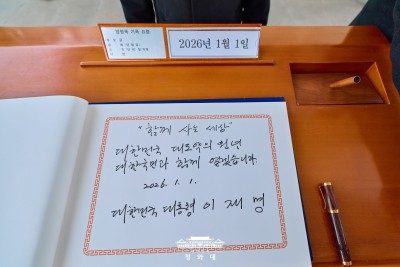 방명록 기록 요령
2026년 1월 1일
"함께 사는 세상"
대한민국 대도약의 원년
대한국민과 함께 열겠습니다
2026. 1. 1.
대한민국 대통령 이재명
청와대